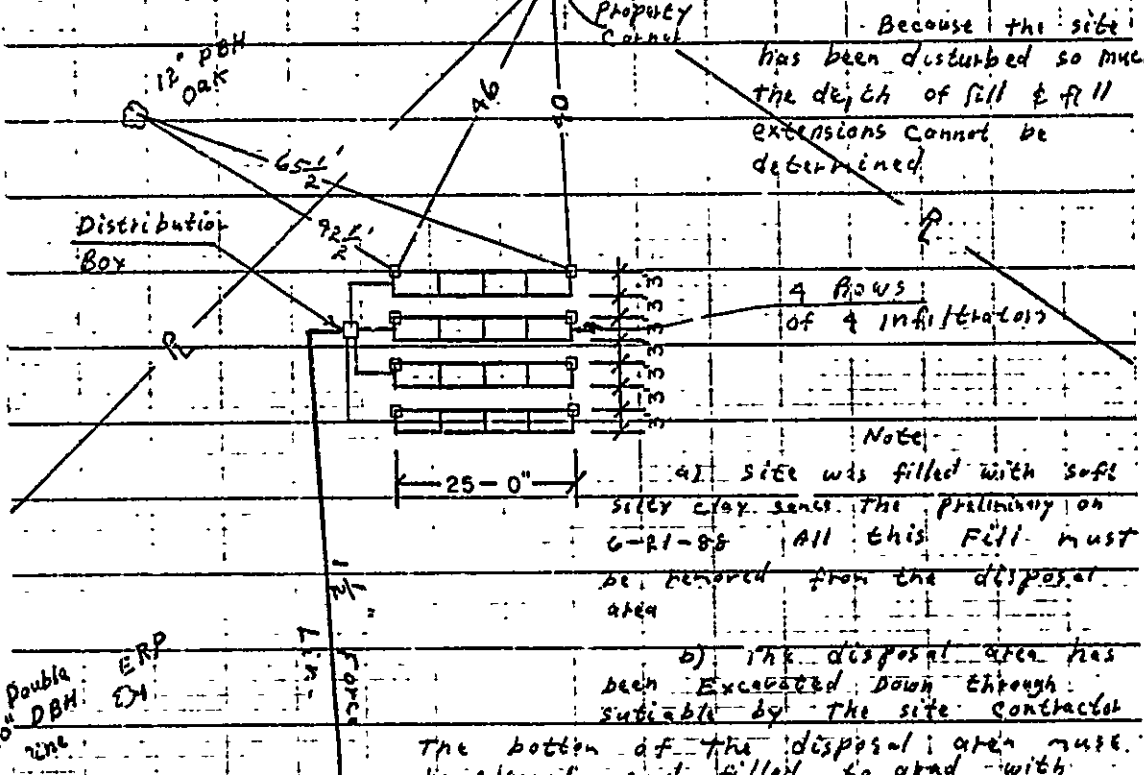 Property
Corner
Because the site
has been disturbed so muc
the depth of fill & fill
extensions cannot be
determined
12" DBH
Oak
46
40
65 1/2'
92 1/2'
Distribution
Box
PL
PL
3'
3'
3'
3'
3'
3'
3'
4 Rows
of 4 Infiltrators
25-0"
Note
a) site was filled with soft
silty clay sence the preliminay on
6-21-88 All this Fill must
be removed from the disposal
area
b) The disposal area has
been Excavated Down through
sutiable by The site contractor
The bottom of the disposal area must
filled to grad with
1 1/2"
Force
Double
DBH
ERP